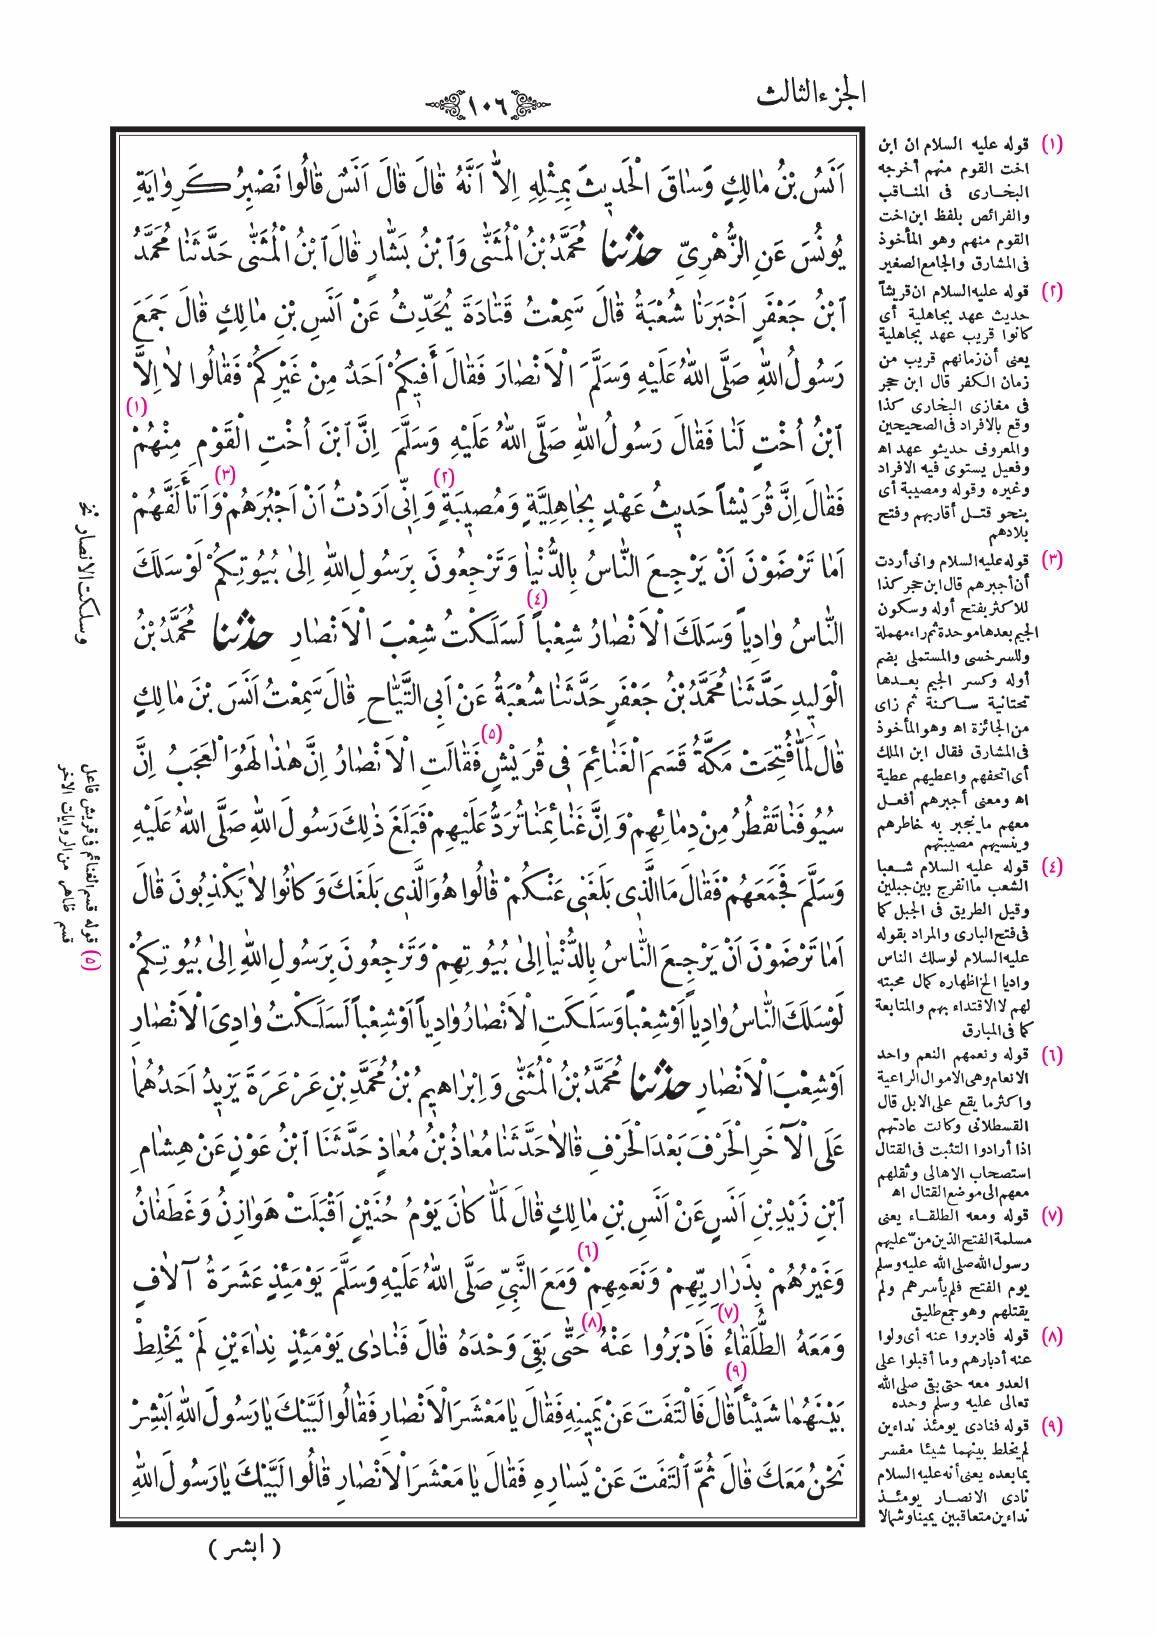 الجزء الثالث
١٠٦
اَنَسُ بْنُ مَالِكٍ وَسَاقَ الْحَدِيثَ بِمِثْلِهِ اِلاَّ اَنَّهُ قَالَ قَالَ اَنَسٌ قَالُوا نَصْبِرُ كَرِوَايَةِ
يُونُسَ عَنِ الزُّهْرِىِّ حدثنا مُحَمَّدُ بْنُ الْمُثَنَّى وَابْنُ بَشَّارٍ قَالَ ابْنُ الْمُثَنَّى حَدَّثَنَا مُحَمَّدُ
ابْنُ جَعْفَرٍ اَخْبَرَنَا شُعْبَةُ قَالَ سَمِعْتُ قَتَادَةَ يُحَدِّثُ عَنْ اَنَسِ بْنِ مَالِكٍ قَالَ جَمَعَ
رَسُولُ اللهِ صَلَّى اللهُ عَلَيْهِ وَسَلَّمَ الْاَنْصَارَ فَقَالَ أَفِيكُمْ اَحَدٌ مِنْ غَيْرِكُمْ فَقَالُوا لاَ اِلاَّ
ابْنُ اُخْتٍ لَنَا فَقَالَ رَسُولُ اللهِ صَلَّى اللهُ عَلَيْهِ وَسَلَّمَ اِنَّ ابْنَ اُخْتِ الْقَوْمِ مِنْهُمْ (١)
فَقَالَ اِنَّ قُرَيْشاً حَدِيثُ عَهْدٍ بِجَاهِلِيَّةٍ وَمُصِيبَةٍ (٢) وَاِنِّى اَرَدْتُ اَنْ اَجْبُرَهُمْ (٣) وَاَتَأَلَّفَهُمْ
اَمَا تَرْضَوْنَ اَنْ يَرْجِعَ النَّاسُ بِالدُّنْيَا وَتَرْجِعُونَ بِرَسُولِ اللهِ اِلَى بُيُوتِكُمْ لَوْ سَلَكَ
النَّاسُ وَادِياً وَسَلَكَ الْاَنْصَارُ شِعْباً (٤) لَسَلَكْتُ شِعْبَ الْاَنْصَارِ حدثنا مُحَمَّدُ بْنُ
الْوَلِيدِ حَدَّثَنَا مُحَمَّدُ بْنُ جَعْفَرٍ حَدَّثَنَا شُعْبَةُ عَنْ اَبِى التَّيَّاحِ قَالَ سَمِعْتُ اَنَسَ بْنَ مَالِكٍ
قَالَ لَمَّا فُتِحَتْ مَكَّةُ قَسَمَ الْغَنَائِمَ فِى قُرَيْشٍ (٥) فَقَالَتِ الْاَنْصَارُ اِنَّ هٰذَا لَهُوَ الْعَجَبُ اِنَّ
سُيُوفَنَا تَقْطُرُ مِنْ دِمَائِهِمْ وَاِنَّ غَنَائِمَنَا تُرَدُّ عَلَيْهِمْ فَبَلَغَ ذٰلِكَ رَسُولَ اللهِ صَلَّى اللهُ عَلَيْهِ
وَسَلَّمَ فَجَمَعَهُمْ فَقَالَ مَا الَّذِى بَلَغَنِى عَنْكُمْ قَالُوا هُوَ الَّذِى بَلَغَكَ وَكَانُوا لاَ يَكْذِبُونَ قَالَ
اَمَا تَرْضَوْنَ اَنْ يَرْجِعَ النَّاسُ بِالدُّنْيَا اِلَى بُيُوتِهِمْ وَتَرْجِعُونَ بِرَسُولِ اللهِ اِلَى بُيُوتِكُمْ
لَوْ سَلَكَ النَّاسُ وَادِياً اَوْ شِعْباً وَسَلَكَتِ الْاَنْصَارُ وَادِياً اَوْ شِعْباً لَسَلَكْتُ وَادِىَ الْاَنْصَارِ
اَوْ شِعْبَ الْاَنْصَارِ حدثنا مُحَمَّدُ بْنُ الْمُثَنَّى وَاِبْرَاهِيمُ بْنُ مُحَمَّدِ بْنِ عَرْعَرَةَ يَزِيدُ اَحَدُهُمَا
عَلَى الْآخَرِ الْحَرْفَ بَعْدَ الْحَرْفِ قَالاَ حَدَّثَنَا مُعَاذُ بْنُ مُعَاذٍ حَدَّثَنَا ابْنُ عَوْنٍ عَنْ هِشَامِ
ابْنِ زَيْدِ بْنِ اَنَسٍ عَنْ اَنَسِ بْنِ مَالِكٍ قَالَ لَمَّا كَانَ يَوْمُ حُنَيْنٍ اَقْبَلَتْ هَوَازِنُ وَغَطَفَانُ
وَغَيْرُهُمْ بِذَرَارِيِّهِمْ وَنَعَمِهِمْ (٦) وَمَعَ النَّبِىِّ صَلَّى اللهُ عَلَيْهِ وَسَلَّمَ يَوْمَئِذٍ عَشَرَةُ آلاَفٍ
وَمَعَهُ الطُّلَقَاءُ (٧) فَاَدْبَرُوا عَنْهُ (٨) حَتَّى بَقِىَ وَحْدَهُ قَالَ فَنَادَى يَوْمَئِذٍ نِدَاءَيْنِ لَمْ يَخْلِطْ
بَيْنَهُمَا شَيْئاً (٩) قَالَ فَالْتَفَتَ عَنْ يَمِينِهِ فَقَالَ يَا مَعْشَرَ الْاَنْصَارِ فَقَالُوا لَبَّيْكَ يَا رَسُولَ اللهِ اَبْشِرْ
نَحْنُ مَعَكَ قَالَ ثُمَّ الْتَفَتَ عَنْ يَسَارِهِ فَقَالَ يَا مَعْشَرَ الْاَنْصَارِ قَالُوا لَبَّيْكَ يَا رَسُولَ اللهِ
( ابشر )
(١) قوله عليه السلام ان ابن
اخت القوم منهم أخرجه
البخارى فى المناقب
والفرائض بلفظ ابن اخت
القوم منهم وهو المأخوذ
فى المشارق والجامع الصغير
(٢) قوله عليه السلام ان قريشاً
حديث عهد بجاهلية أى
كانوا قريب عهد بجاهلية
يعنى أن زمانهم قريب من
زمان الكفر قال ابن حجر
فى مغازى البخارى كذا
وقع بالافراد فى الصحيحين
والمعروف حديثو عهد اه
وفعيل يستوى فيه الافراد
وغيره وقوله ومصيبة أى
بنحو قتل أقاربهم وفتح
بلادهم
(٣) قوله عليه السلام وانى أردت
أن أجبرهم قال ابن حجر كذا
للاكثر بفتح أوله وسكون
الجيم بعدها موحدة ثم راء مهملة
وللسرخسى والمستملى بضم
أوله وكسر الجيم بعدها
تحتانية ساكنة ثم زاى
من الجائزة اه وهو المأخوذ
فى المشارق فقال ابن الملك
أى اتحفهم واعطيهم عطية
اه ومعنى أجبرهم أفعل
معهم ما ينجبر به خاطرهم
وينسيهم مصيبتهم
(٤) قوله عليه السلام شعبا
الشعب ما انفرج بين جبلين
وقيل الطريق فى الجبل كما
فى فتح البارى والمراد بقوله
عليه السلام لو سلك الناس
واديا الخ اظهاره كمال محبته
لهم لا الاقتداء بهم والمتابعة
كما فى المبارق
(٦) قوله ونعمهم النعم واحد
الانعام وهى الاموال الراعية
واكثر ما يقع على الابل قال
القسطلانى وكانت عادتهم
اذا أرادوا التثبت فى القتال
استصحاب الاهالى وثقلهم
معهم الى موضع القتال اه
(٧) قوله ومعه الطلقاء يعنى
مسلمة الفتح الذين منّ عليهم
رسول الله صلى الله عليه وسلم
يوم الفتح فلم يأسرهم ولم
يقتلهم وهو جمع طليق
(٨) قوله فادبروا عنه أى ولوا
عنه أدبارهم وما أقبلوا على
العدو معه حتى بقى صلى الله
تعالى عليه وسلم وحده
(٩) قوله فنادى يومئذ نداءين
لم يخلط بينهما شيئا مفسر
بما بعده يعنى أنه عليه السلام
نادى الانصار يومئذ
نداءين متعاقبين يمينا وشمالا
وسلكت الانصار نخ
(٥) قوله قسم الغنائم فى قريش فاعل
قسم ظاهر من الروايات الاخر